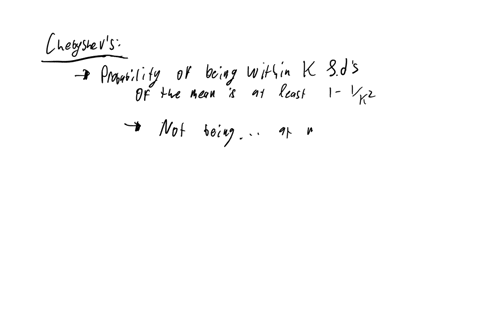 Chebyshev's:
→ Probability of being within K S.d's
of the mean is at least 1 - 1/K²
→ Not being... at